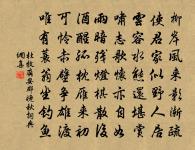 柳岸風來影漸疏
使君家似野人居
雲容水態還堪賞
嘯志歌懷亦自如
雨暗殘燈棋散後
酒醒孤枕雁來初
可憐赤壁爭雄渡
唯有蓑翁坐釣魚
杜牧齊安郡晚秋詞典
網集